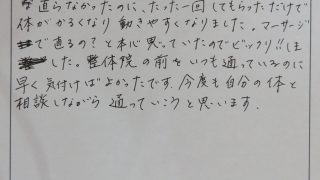 直らなかったのに、たった一回してもらっただけで
体がかるくなり動きやすくなりました。マーサージ
で直るの?と本心思っていたのでビックリ!!しま
した。整体院の前をいつも通っているのに
早く気付けばよかったです。今度も自分の体と
相談しながら通っていこうと思います.